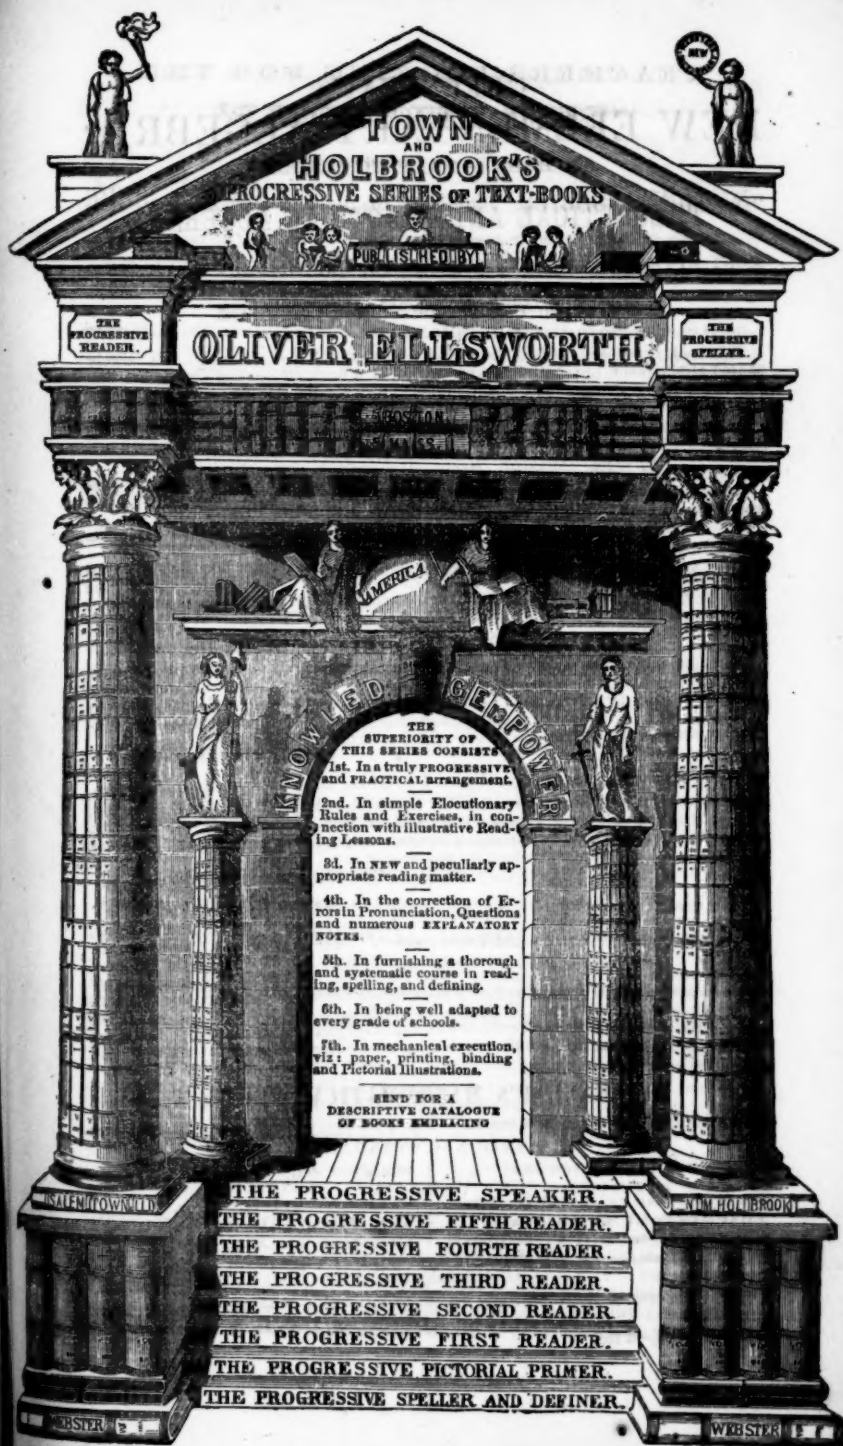 NEW
TOWN
AND
HOLBROOK'S
PROGRESSIVE SERIES OF TEXT-BOOKS
PUBLISHED BY
THE
PROGRESSIVE
READER.
OLIVER ELLSWORTH.
THE
PROGRESSIVE
SPELLER.
BOSTON
MASS.
AMERICA
KNOWLEDGE IS POWER
THE
SUPERIORITY OF
THIS SERIES CONSISTS
1st. In a truly PROGRESSIVE
and PRACTICAL arrangement.
2nd. In simple Elocutionary
Rules and Exercises, in con-
nection with illustrative Read-
ing Lessons.
3d. In NEW and peculiarly ap-
propriate reading matter.
4th. In the correction of Er-
rors in Pronunciation, Questions
and numerous EXPLANATORY
NOTES.
5th. In furnishing a thorough
and systematic course in read-
ing, spelling, and defining.
6th. In being well adapted to
every grade of schools.
7th. In mechanical execution,
viz: paper, printing, binding
and Pictorial Illustrations.
SEND FOR A
DESCRIPTIVE CATALOGUE
OF BOOKS EMBRACING
SALEM TOWN LLD
N. M. HOLBROOK
THE PROGRESSIVE SPEAKER.
THE PROGRESSIVE FIFTH READER.
THE PROGRESSIVE FOURTH READER.
THE PROGRESSIVE THIRD READER.
THE PROGRESSIVE SECOND READER
THE PROGRESSIVE FIRST READER.
THE PROGRESSIVE PICTORIAL PRIMER.
THE PROGRESSIVE SPELLER AND DEFINER.
WEBSTER
WEBSTER